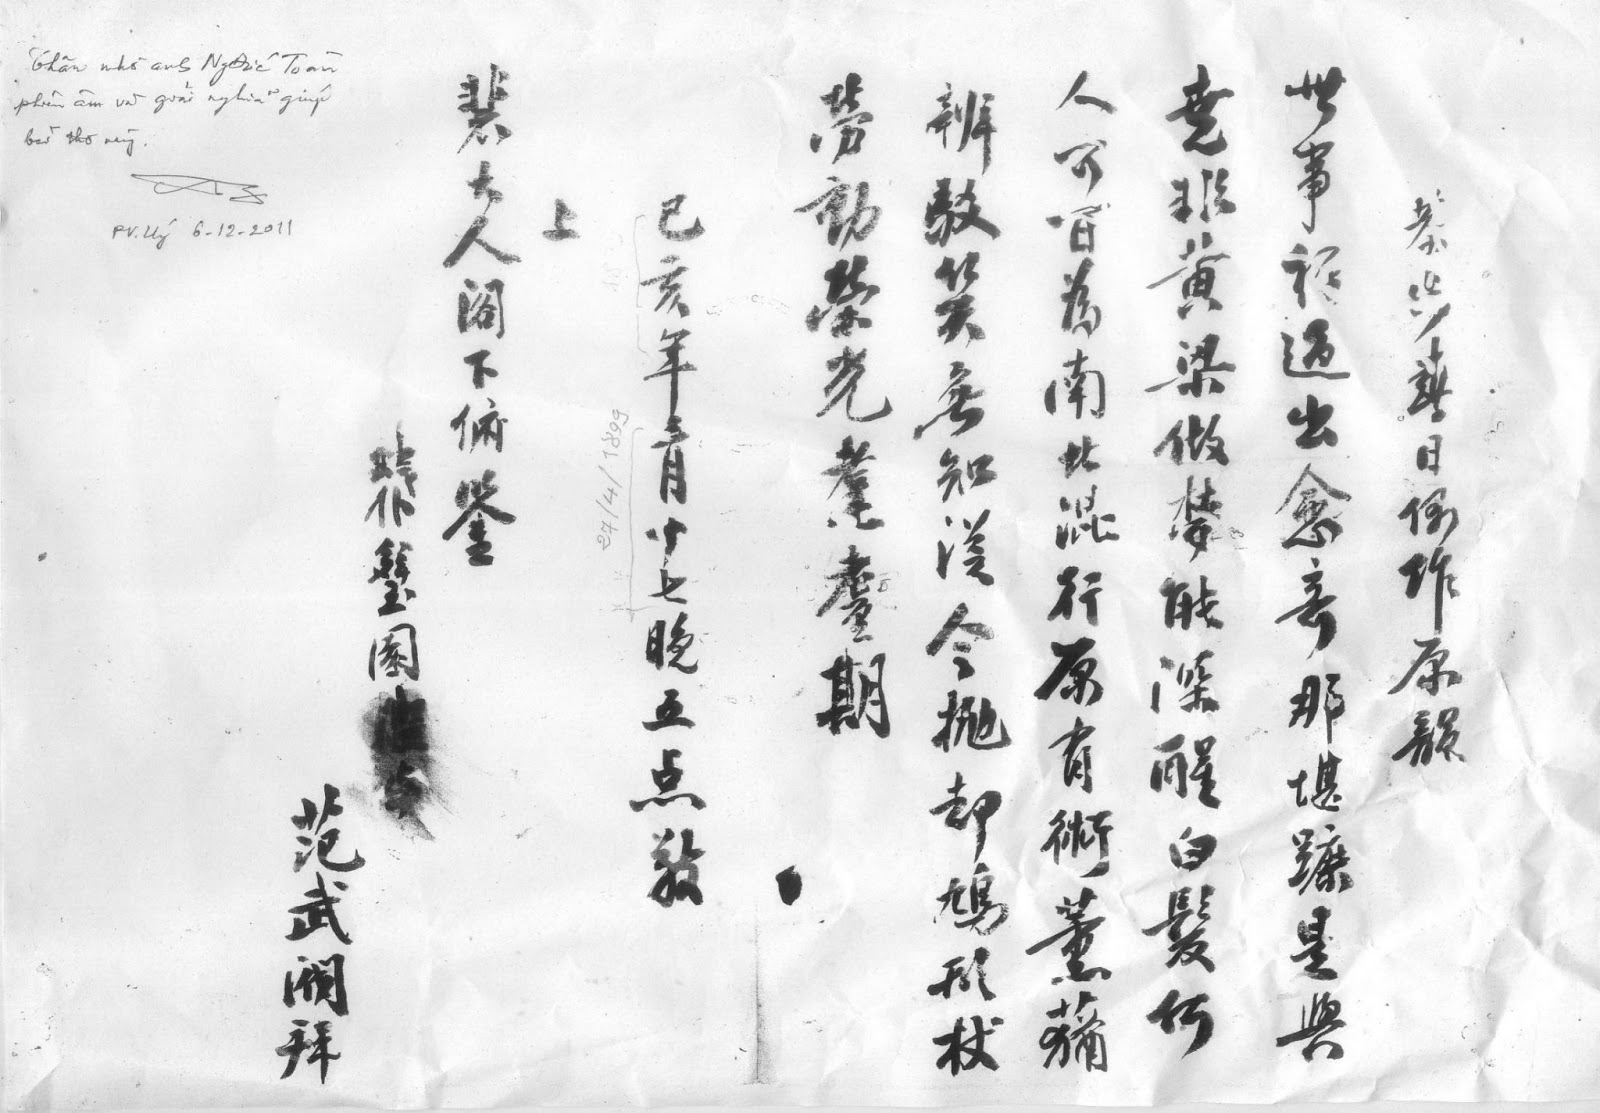 恭步壽日偶作原韻
世事經過出愈奇那堪蹤是與
堯非黃梁做夢能深醒白髮何
人可昔為南北混行原有術薰蕕
辨駁笑無知從今拋却鳩形杖
勞動榮光耄耋期
己亥年三月十七晚五点敬
上
裴大人閣下俯鑒
璧園
范武
拜
Thân nhờ anh Ngđức Toàn
phiên âm và giải nghĩa giúp
bài thơ này.
PV.Uý 6-12-2011
27/4/1899